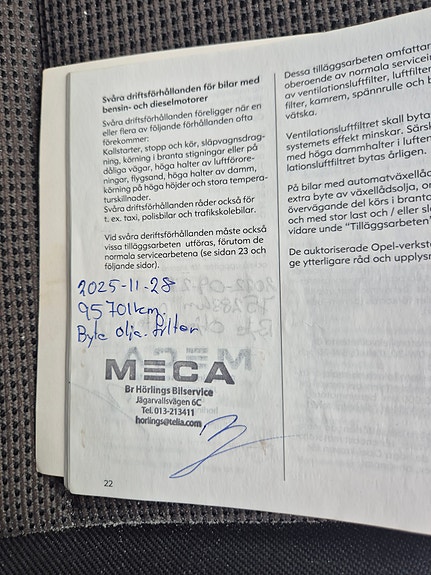 Svåra driftsförhållanden för bilar med
bensin- och dieselmotorer
Svåra driftsförhållanden föreligger när en
eller flera av följande förhållanden ofta
förekommer:
Kallstarter, stopp och kör, släpvagnsdrag-
ning, körning i branta stigningar eller på
dåliga vägar, höga halter av luftförore-
ningar, flygsand, höga halter av damm,
körning på höga höjder och stora tempera-
turskillnader.
Svåra driftsförhållanden råder också för
t. ex. taxi, polisbilar och trafikskolebilar.
Vid svåra driftförhållanden måste också
vissa tilläggsarbeten utföras, förutom de
normala servicearbetena (se sidan 23 och
följande sidor).
2025-11-28
95701km.
Byte olja. filter
MECA
Br Hörlings Bilservice
Jägarvallsvägen 6C
Tel. 013-213411
horlings@telia.com
22
Dessa tilläggsarbeten omfattar
oberoende av normala servicein
av ventilationsluftfilter, luftfilter
filter, kamrem, spännrulle och b
vätska.
Ventilationsluftfiltret skall byta
systemets effekt minskar. Särsk
med höga dammhalter i luften
lationsluftfiltret bytas årligen.
På bilar med automatväxellåd
extra byte av växellådsolja, om
övervägande del körs i branta
och med stor last och / eller slä
vidare unde "Tilläggsarbeten"
De auktoriserade Opel-verkst
ge ytterligare råd och upplysn